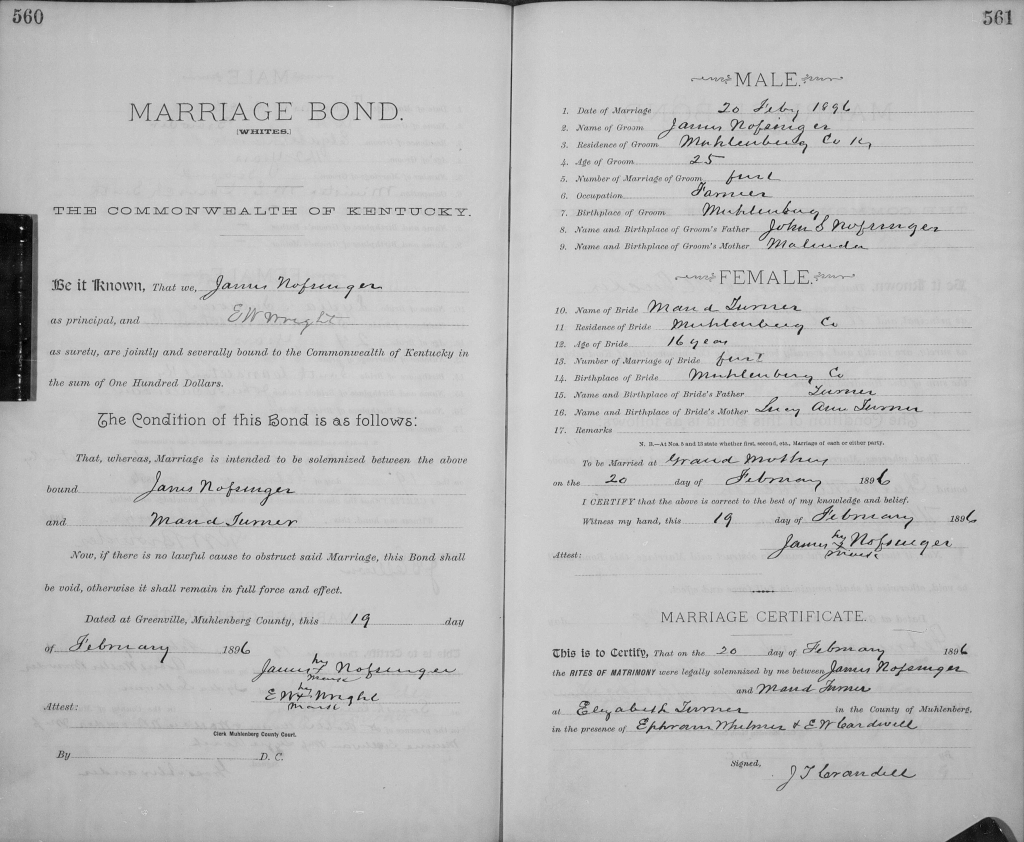 560
MARRIAGE BOND.
[WHITES.]
THE COMMONWEALTH OF KENTUCKY.
Be it Known, That we, James Nofsinger
as principal, and E W Wright
as surety, are jointly and severally bound to the Commonwealth of Kentucky in
the sum of One Hundred Dollars.
The Condition of this Bond is as follows:
That, whereas, Marriage is intended to be solemnized between the above
bound James Nofsinger
and Maud Turner
Now, if there is no lawful cause to obstruct said Marriage, this Bond shall
be void, otherwise it shall remain in full force and effect.
Dated at Greenville, Muhlenberg County, this 19 day
of February 1896
James his x mark Nofsinger
E W his x mark Wright
Attest:
Clerk Muhlenberg County Court.
By D. C.
561
MALE.
1. Date of Marriage 20 Feby 1896
2. Name of Groom James Nofsinger
3. Residence of Groom Muhlenberg Co Ky
4. Age of Groom 25
5. Number of Marriage of Groom first
6. Occupation Farmer
7. Birthplace of Groom Muhlenberg
8. Name and Birthplace of Groom's Father John S Nofsinger
9. Name and Birthplace of Groom's Mother Malinda
FEMALE.
10. Name of Bride Maud Turner
11 Residence of Bride Muhlenberg Co
12. Age of Bride 16 year
13. Number of Marriage of Bride first
14. Birthplace of Bride Muhlenberg Co
15. Name and Birthplace of Bride's Father Turner
16. Name and Birthplace of Bride's Mother Lucy Ann Turner
17. Remarks
N. B.—At Nos 5 and 13 state whether first, second, etc., Marriage of each or either party.
To be Married at Grand Mothers
on the 20 day of February 1896
I CERTIFY that the above is correct to the best of my knowledge and belief.
Witness my hand, this 19 day of February 1896
James his x mark Nofsinger
Attest:
MARRIAGE CERTIFICATE.
This is to Certify, That on the 20 day of February 1896
the RITES OF MATRIMONY were legally solemnized by me between James Nofsinger
and Maud Turner
at Elizabeth Turner in the County of Muhlenberg,
in the presence of Ephraim Whitmer & E W Cardwell
Signed,
J T Crandell